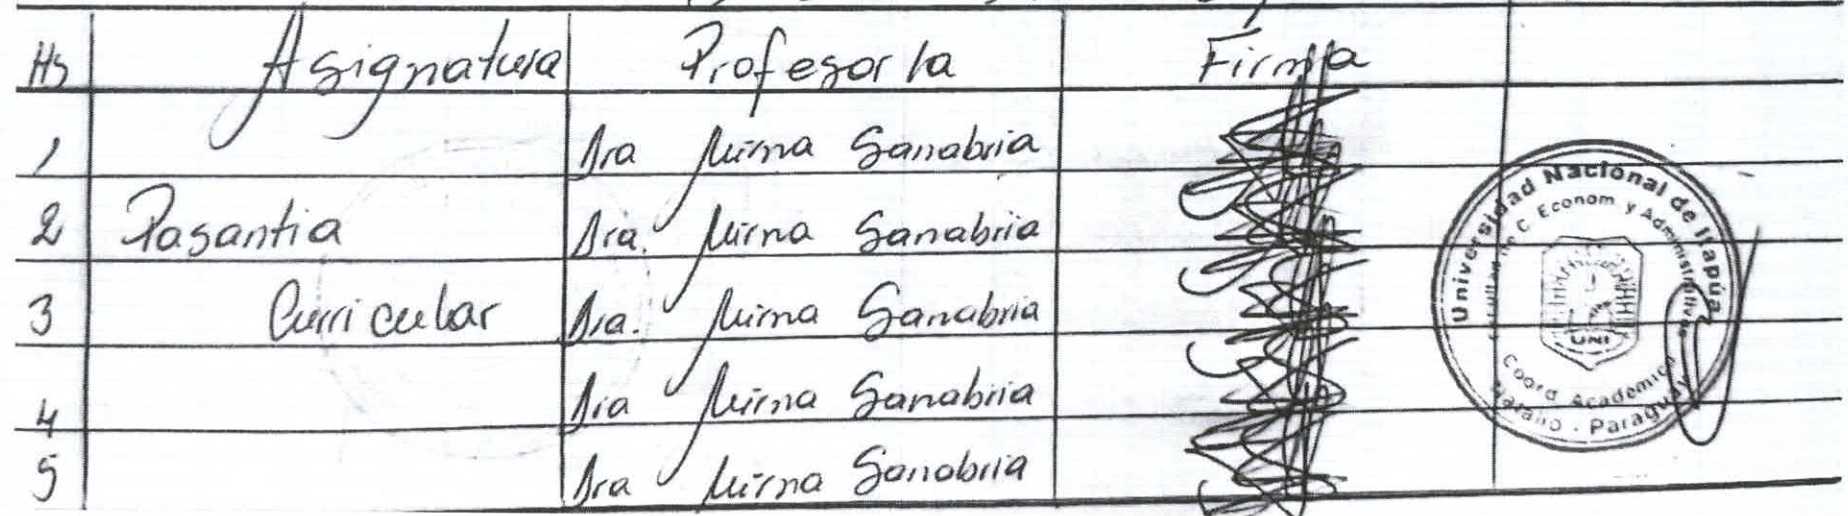 Hs Asignatura Profesor/a Firma
1 Dra Mirna Sanabria
2 Pasantia Dra. Mirna Sanabria
3 Curricular Dra. Mirna Sanabria
4 Dra Mirna Sanabria
5 Dra Mirna Sanabria
Universidad Nacional de Itapúa
C. Econom. y Administrativas
UNI
Coord Académica
Natalio - Paraguay